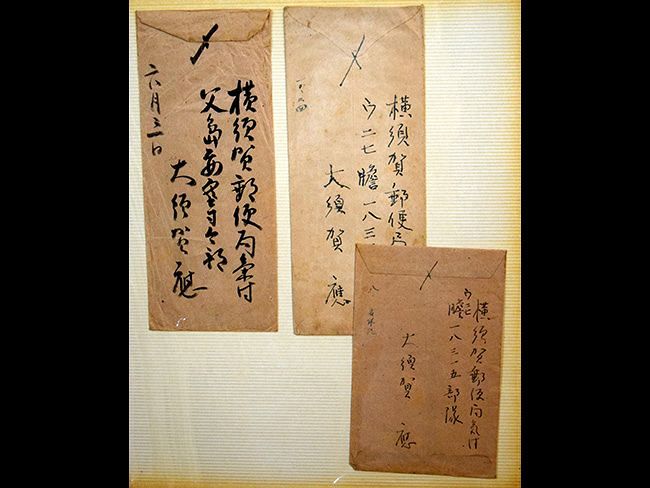 〆
横須賀郵便局気付
父島要塞司令部
大須賀應
〆
横須賀郵便局
ウ二七膽一八三
大須賀應
〆
横須賀郵便局気付
ウ二七
膽一八三一五部隊
大須賀應
八